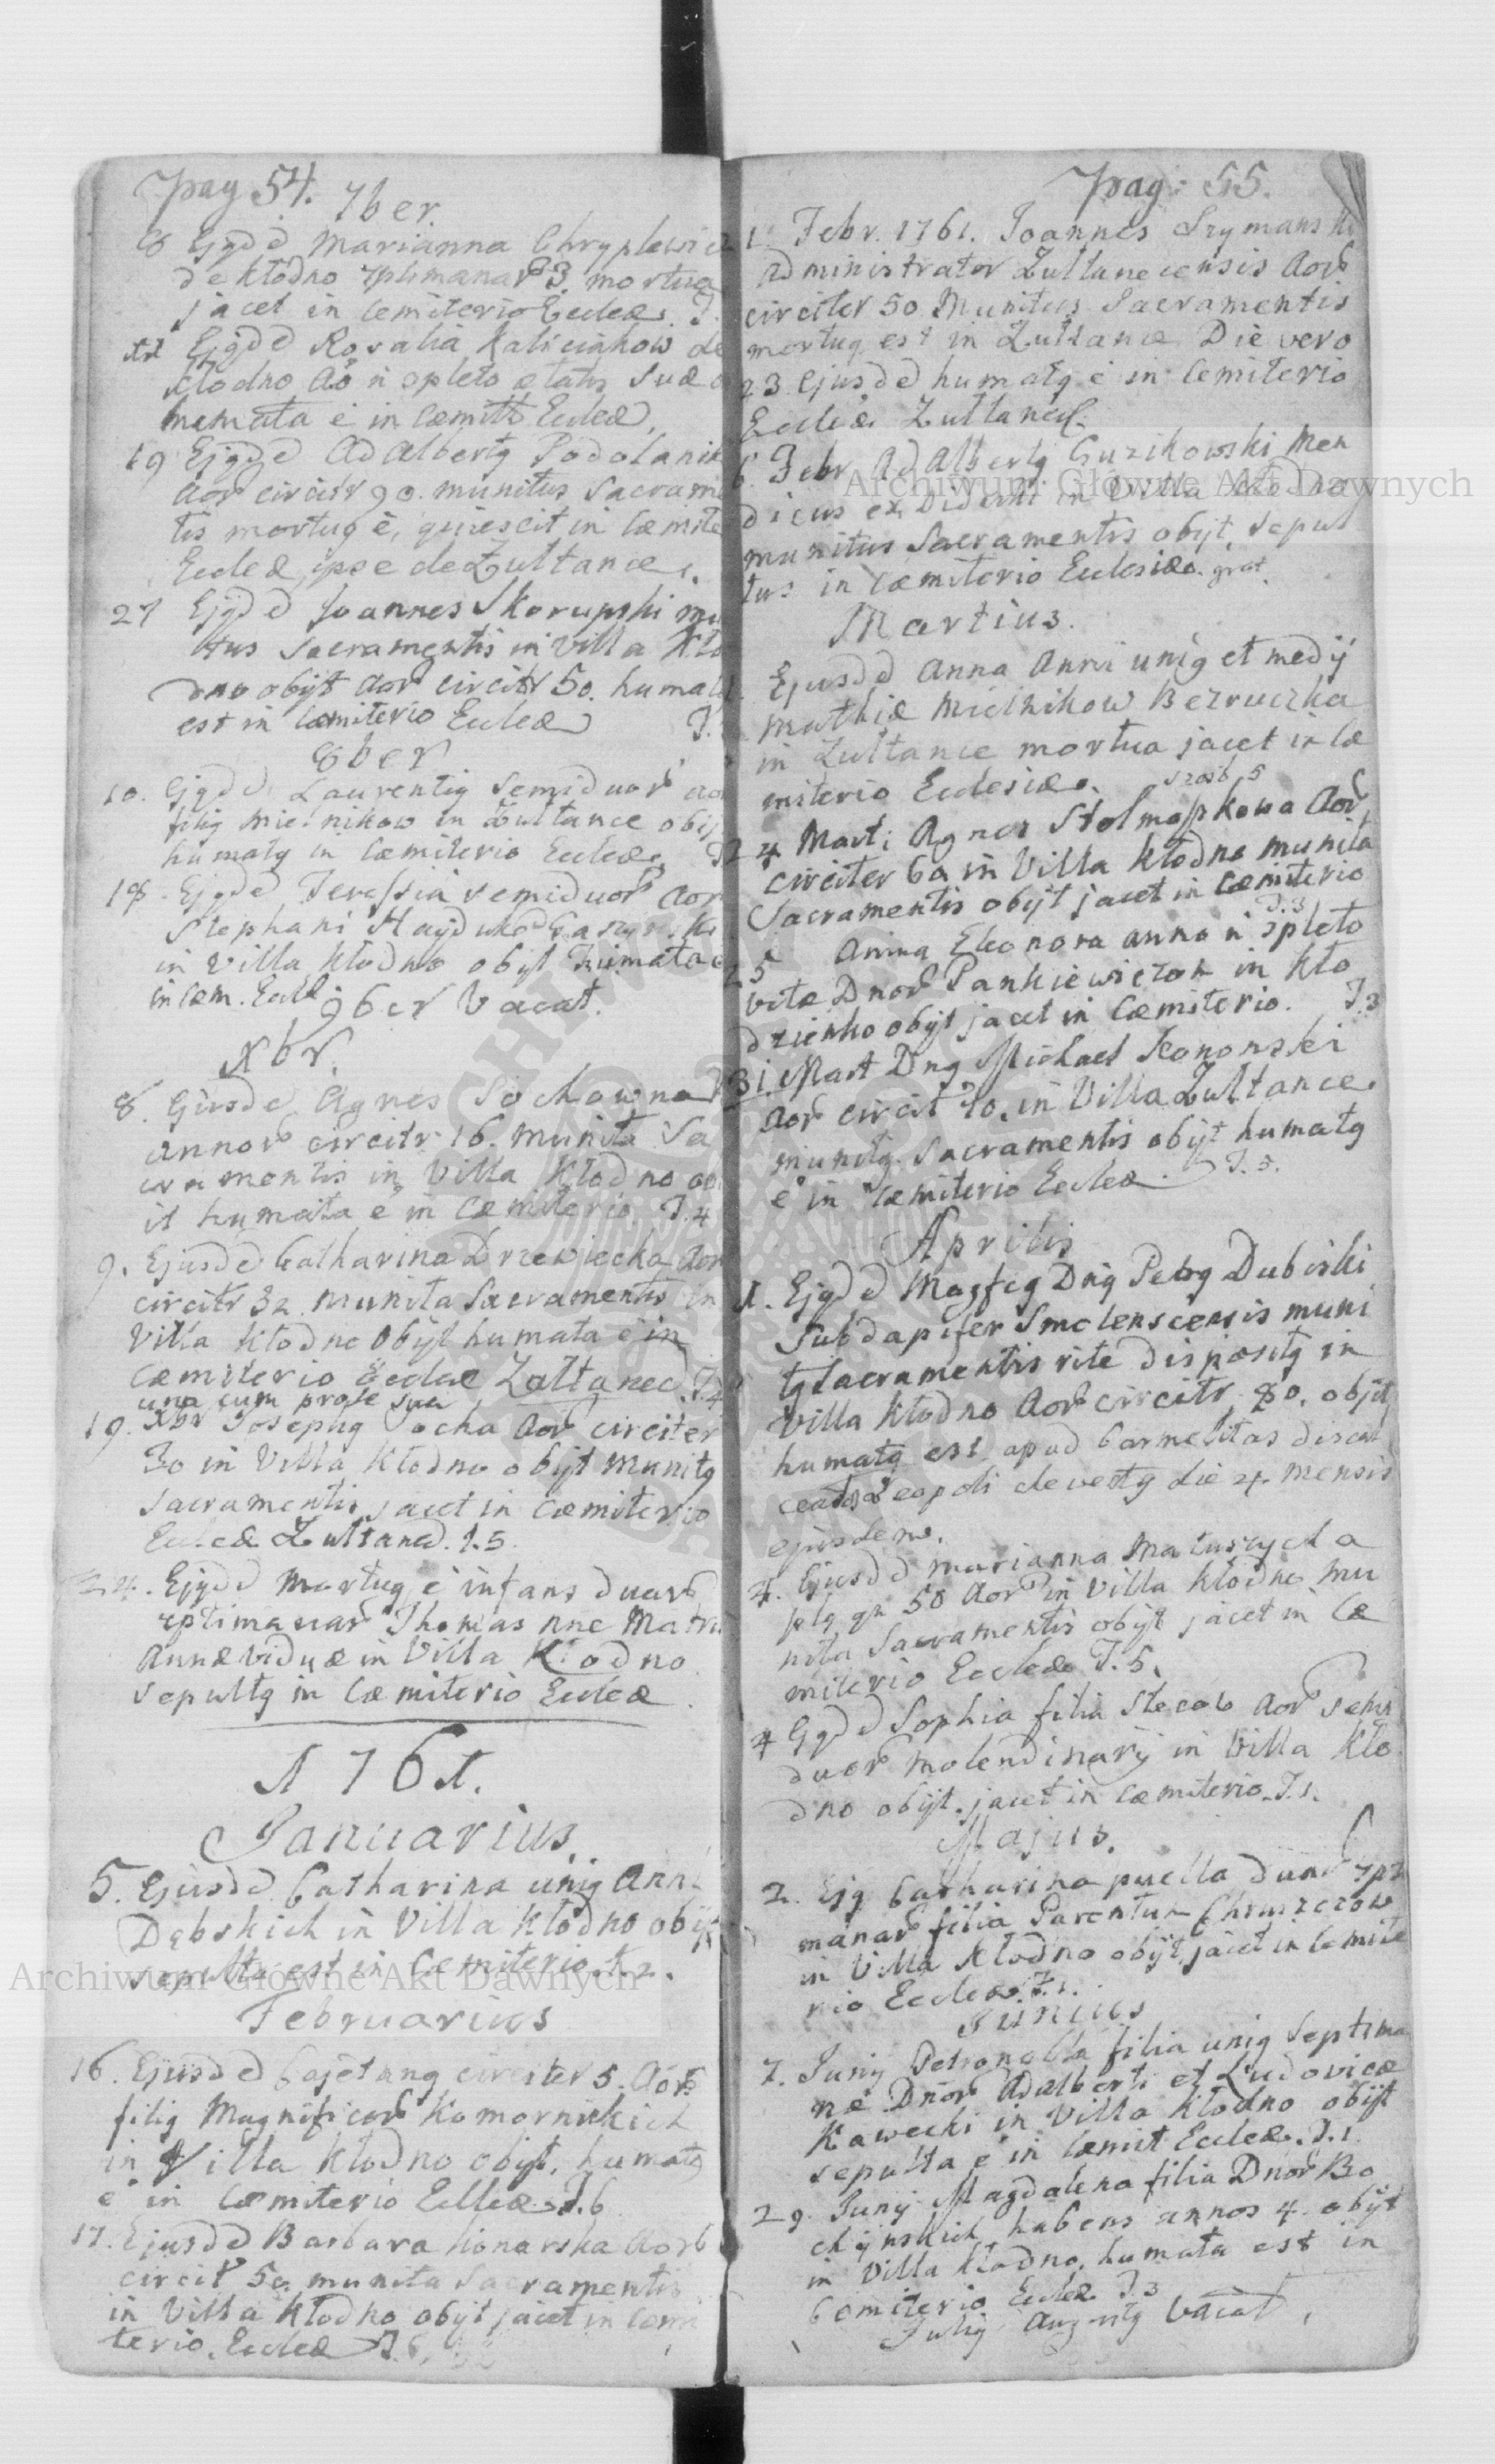 pag 54. 7ber.
8 Ejqdd Marianna Chryplewic
de Kłodno 7ptimanar 3. mortua
jacet in Cemiterio Eccleæ. T.
Ejqdd Rosalia Kaliciakow de
Kłodno Ao n
humata e in Cæmitt Eccleæ.
19 Ejqdd Adalbertq Podolanik
Aor circitr 90. munitus Sacramē
tis mortuq ē, quiescit in Cæmite
Eccleæ, ipse de Zułtance.
27 Ejqdd Joannes Skorupski mu
itus Sacramentis in Villa Kło
dno obijt Aor circitr 50. humatq
est in Cæmiterio Eccleæ T.
8ber
10. Ejqdd Laurentiq Semiduor Ao
filiq Mielnikow in Zułtance obij
humatq in Cæmiterio Eccleæ T
18. Ejqdd Teressia semiduor Aor
Stephani Hayduk
in Villa Kłodno obijt humata e
in Cæm. Eccl.
9ber Vacat.
Xbr.
8. Ejusdē Agnes Sochowna
Annor circitr 16. Munita Sa
cramentis in Villa Kłodno ob
it humata ē in Cæmiterio T.4
9. Ejusdē Catharina Drzewiecka Aor
circitr 32. munita Sacramentis in
Villa Kłodno Obijt humata ē in
Cæmiterio Eccleæ Zułtanec. T.4
una cum prole sua
19. Xbr Josephq Socha Aor circiter
30 in Villa Kłodno obijt munitq
Sacramentis jacet in Cæmiterio
Eccleæ Zułtanec. T.5.
24. Ejqdd Mortuq ē infans duar
7ptimanar Thomas
Annæ viduæ in Villa Kłodno
sepultq in Cæmiterio Eccleæ.
1761.
Januarius.
5. Ejusdd Catharina uniq Anni
Dębskich in Villa Kłodno obijt
sepulta est in Cæmiterio. T.2.
Februarius
16. Ejusdd Cajetanq circiter 5. Aor
filiq Magnificor Komornickich
in Villa Kłodno obijt, humatq
ē in Cæmiterio Eccleæ. T.6
17. Ejusdd Barbara Konarska Aor
circit 50. munita Sacramentis
in Villa Kłodno obijt jacet in Cæmi
terio Eccleæ T.6.
pag: 55.
21. Febr. 1761. Joannes Szymański
Administrator Zułtanecensis Aor
circiter 50 Munitus Sacramentis
mortuq est in Zułtance Die vero
23 ejusdd humatq ē in Cemiterio
Eccleæ Zułtanec.
6. Febr Adalbertq Guzikowski Men
dicus in Villa Kłodno
munitus Sacramentis obijt, sepul
tus in Cæmiterio Ecclesiæ. grat.
Martius.
Ejusdd Anna Anni uniq et medij
Mathiæ Mielnikow Bezruczka
in Zułtance mortua jacet in Cæ
miterio Ecclesiæ.
24 Marti Agnes Stolmaszkowa Aor
circiter 60 in Villa Kłodno munita
Sacramentis obijt jacet in Cæmiterio
T.3
25 Anna Eleonora anno n
vitæ Dnor Pankiewiczow in Kło
dzienko obijt jacet in Cæmiterio. T.3
31. Mart Dnq Michael Kononski
Aor circit 70. in Villa Zułtance
munitq Sacramentis obijt humatq
ē in Cæmiterio Eccleæ. T.5.
Aprilis
1. Ejqdd Magfcq Dnq Petrq Dubiski
Subdapifer Smolenscensis muni
tq Sacramentis rite dispositq in
Villa Kłodno Aor circitr 80. obijt
humatq est apud Carmelitas discal
ceatos Leopoli devectq die 4. mensis
ejusdem.
4. Ejusdd Marianna Matuszycha
plq qu 50 Aor in Villa Kłodno mu
nita Sacramentis obijt jacet in Cæ
miterio Eccleæ T.5.
4 Ejqdd Sophia filia Stecow Aor semi
duor Molendinarij in Villa Kło
dno obijt. jacet in Cæmiterio. T.1.
Majus.
2. Ejq Catharina puella duar 7pti
manar filia Parentum Chruszczow
in Villa Kłodno obijt, jacet in Cemite
rio Eccleæ. T.1.
Junius
7. Junij Petronella filia uniq Septima
næ Dnor Adalberti et Ludovicæ
Kawecki in Villa Kłodno obijt
sepulta ē in Cæmit Eccleæ. T.1
29. Junij Magdalena filia Dnor Bo
chynskich, habens annos 4. obijt
in Villa Kłodno, humata est in
Cemiterio Eccleæ T.3
Julij Augustq Vacat.
Archiwum Główne Akt Dawnych
Archiwum Główne Akt Dawnych